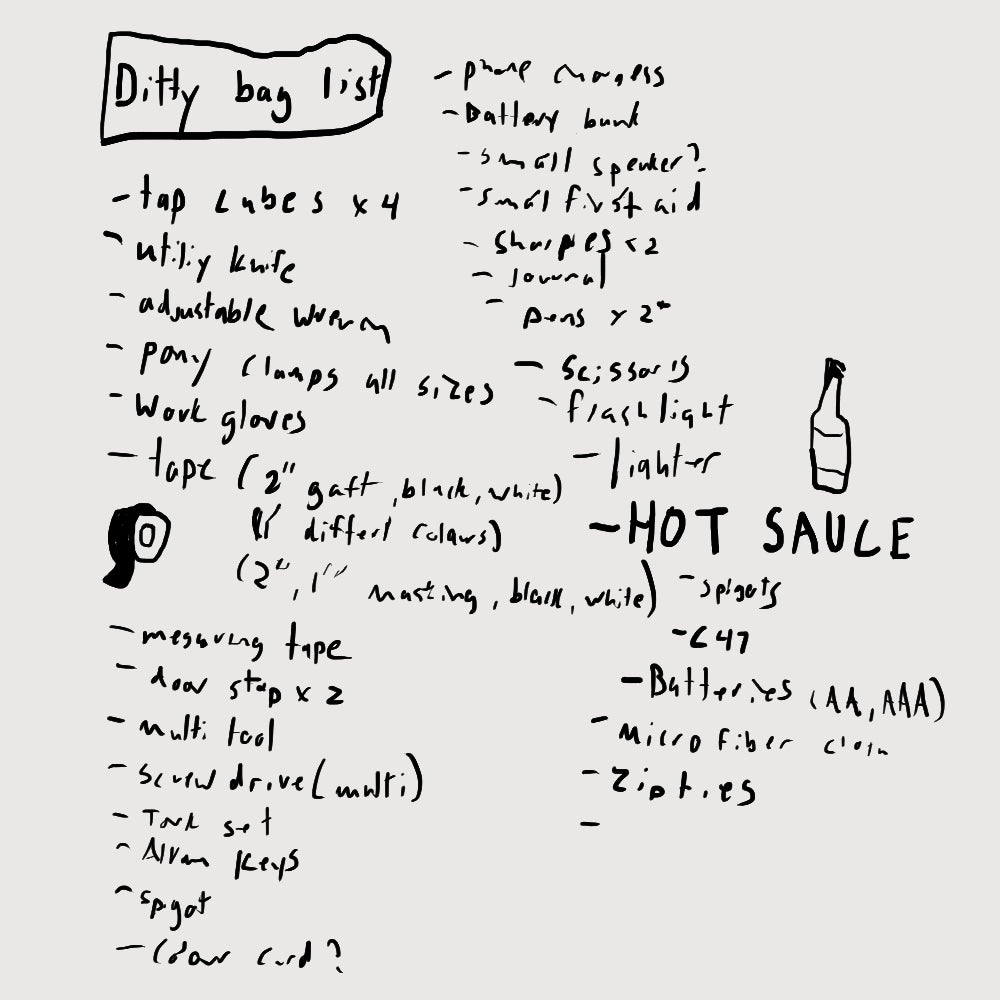 Ditty bag list
- tap cubes x 4
- utiliy knife
- adjustable wrench
- pony clamps all sizes
- Work gloves
- tape (2" gaft, black, white)
(1" differt colours)
(2", 1" masking, black, white)
- mesuring tape
- door stop x 2
- multi tool
- screw drive (multi)
- Tork set
- Allan keys
- spigot
- Colour card?
- phone chargers
- Battery bank
- small speaker?
- small first aid
- sharpies x 2
- journal
- pens x 2+
- Scissoris
- flashlight
- lighter
- HOT SAUCE
- spigots
- C47
- Batteries (AA, AAA)
- Micro fiber cloth
- Zip ties
-